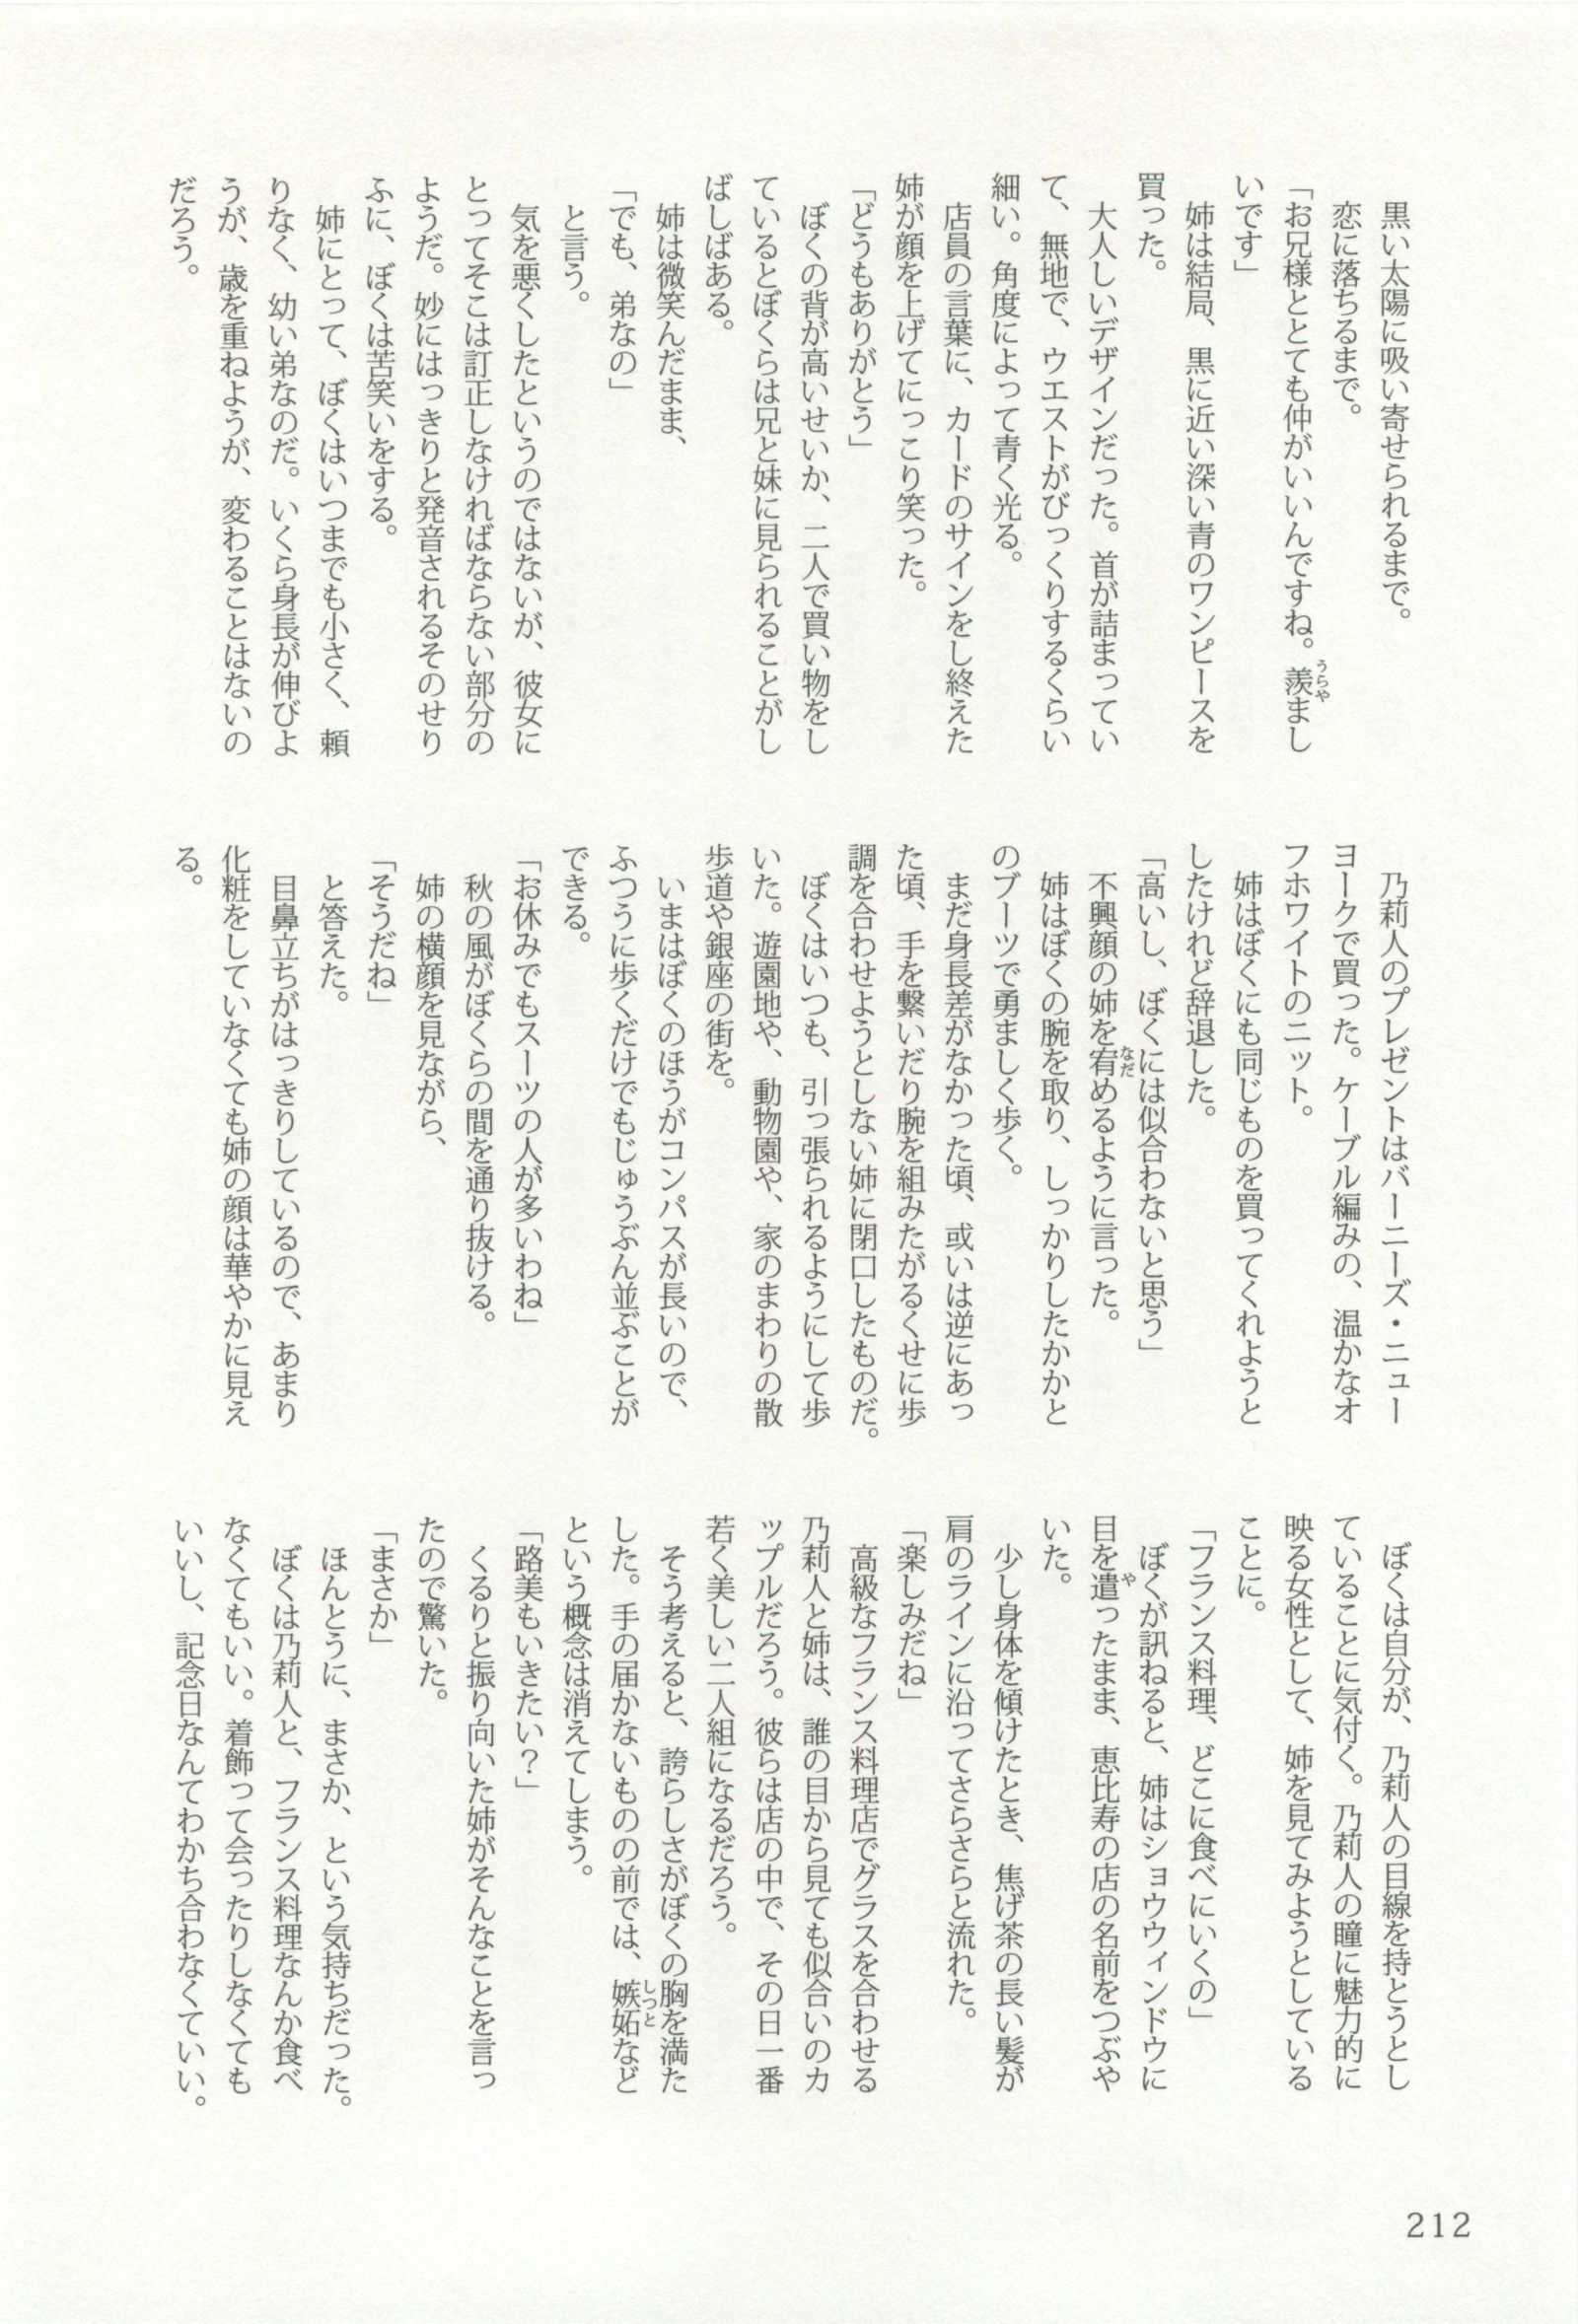 黒い太陽に吸い寄せられるまで。
恋に落ちるまで。
「お兄様ととても仲がいいんですね。羨まし
いです」
姉は結局、黒に近い深い青のワンピースを
買った。
大人しいデザインだった。首が詰まってい
て、無地で、ウエストがびっくりするくらい
細い。角度によって青く光る。
店員の言葉に、カードのサインをし終えた
姉が顔を上げてにっこり笑った。
「どうもありがとう」
ぼくの背が高いせいか、二人で買い物をし
ているとぼくらは兄と妹に見られることがし
ばしばある。
姉は微笑んだまま、
「でも、弟なの」
と言う。
気を悪くしたというのではないが、彼女に
とってそこは訂正しなければならない部分の
ようだ。妙にはっきりと発音されるそのせり
ふに、ぼくは苦笑いをする。
姉にとって、ぼくはいつまでも小さく、頼
りなく、幼い弟なのだ。いくら身長が伸びよ
うが、歳を重ねようが、変わることはないの
だろう。
乃莉人のプレゼントはバーニーズ・ニュー
ヨークで買った。ケーブル編みの、温かなオ
フホワイトのニット。
姉はぼくにも同じものを買ってくれようと
したけれど辞退した。
「高いし、ぼくには似合わないと思う」
不興顔の姉を宥めるように言った。
姉はぼくの腕を取り、しっかりしたかかと
のブーツで勇ましく歩く。
まだ身長差がなかった頃、或いは逆にあっ
た頃、手を繋いだり腕を組みたがるくせに歩
調を合わせようとしない姉に閉口したものだ。
ぼくはいつも、引っ張られるようにして歩
いた。遊園地や、動物園や、家のまわりの散
歩道や銀座の街を。
いまはぼくのほうがコンパスが長いので、
ふつうに歩くだけでもじゅうぶん並ぶことが
できる。
「お休みでもスーツの人が多いわね」
秋の風がぼくらの間を通り抜ける。
姉の横顔を見ながら、
「そうだね」
と答えた。
目鼻立ちがはっきりしているので、あまり
化粧をしていなくても姉の顔は華やかに見え
る。
ぼくは自分が、乃莉人の目線を持とうとし
ていることに気付く。乃莉人の瞳に魅力的に
映る女性として、姉を見てみようとしている
ことに。
「フランス料理、どこに食べにいくの」
ぼくが訊ねると、姉はショウウィンドウに
目を遣ったまま、恵比寿の店の名前をつぶや
いた。
少し身体を傾けたとき、焦げ茶の長い髪が
肩のラインに沿ってさらさらと流れた。
「楽しみだね」
高級なフランス料理店でグラスを合わせる
乃莉人と姉は、誰の目から見ても似合いのカ
ップルだろう。彼らは店の中で、その日一番
若く美しい二人組になるだろう。
そう考えると、誇らしさがぼくの胸を満た
した。手の届かないものの前では、嫉妬など
という概念は消えてしまう。
「路美もいきたい？」
くるりと振り向いた姉がそんなことを言っ
たので驚いた。
「まさか」
ほんとうに、まさか、という気持ちだった。
ぼくは乃莉人と、フランス料理なんか食べ
なくてもいい。着飾って会ったりしなくても
いいし、記念日なんてわかち合わなくていい。
212